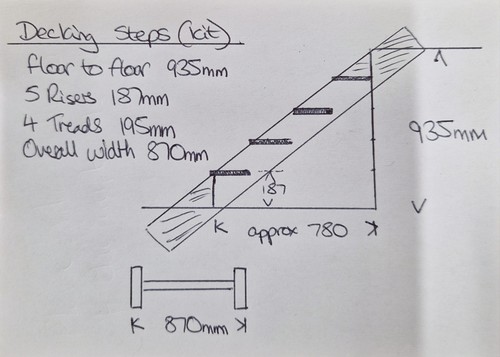 Decking Steps (kit).
floor to floor 935mm
5 Risers 187mm
4 Treads 195mm
Overall width 870mm
935mm
187
approx 780
870mm